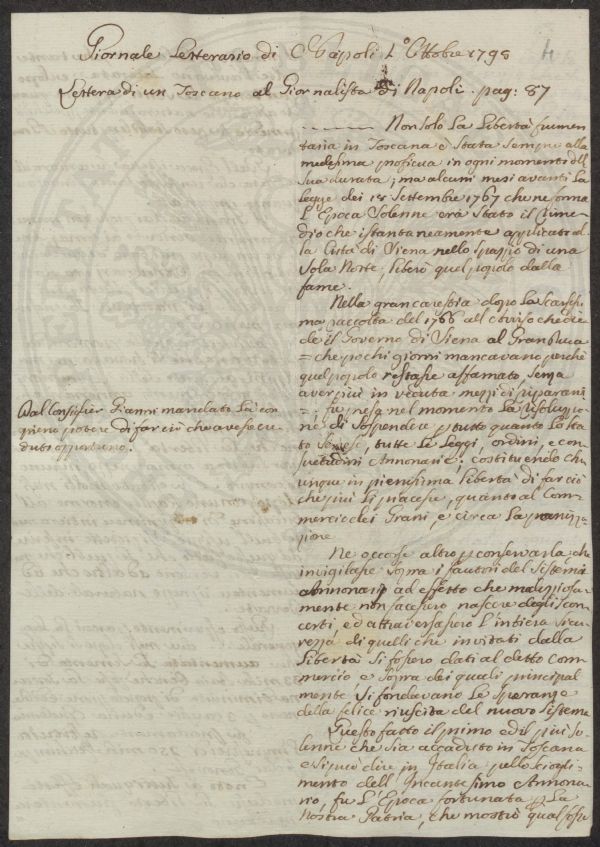 Giornale Letterario di Napoli 1.° Ottobre 1798
4
Lettera di un Toscano al Giornalista di Napoli. pag: 87
Non solo La Libertà frumen
taria in Toscana è stata sempre alla
medesima proficua in ogni momento dell
sua durata; ma alcuni mesi avanti La
Legge dei 18 Settembre 1767 che ne forma
L'Epoca Solenne era stato il Rime
dio che istantaneamente applicato al
la Città di Siena nello spazio di una
sola Notte, liberò quel popolo dalla
fame.
Nella gran carestia dopo La Scarsissi
ma raccolta del 1766 all'avviso che die
de il Governo di Siena al Granduca
= che pochi giorni mancavano perchè
quel popolo restasse affamato, senza
aver più in veduta mezzi di ripararvi
=, fu presa nel momento La risoluzio
ne di Sospendere p tutto quanto Lo Sta
to Senese, tutte Le Leggi, ordini, e con
suetudini Annonarie; costituendo ch
unque in pienissima Libertà di far ciò
che più Li piacesse, quanto al Com
mercio dei Grani, e circa La panizza
zione
Dal Consiglier Gianni mandato Là con
pieno potere di far ciò che avesse cre
duto opportuno.
Ne occorse altro p conservarla che
invigilare sopra i fautori del Sistema
Annonario ad effetto che maliziosa
mente non facessero nascere degli scon
certi, ed attraversassero L'intiera Sicu
rezza di quelli che invitati dalla
Libertà Si fossero dati al detto com
mercio e sopra dei quali principal
mente Si fondavano Le Speranze
della felice riuscita del nuovo Sistema
Questo fatto il primo ed il più So
lenne che sia accaduto in Toscana
e si può dire in Italia pello Sciogli
mento dell'Incantesimo Annona
rio, fu L'Epoca fortunata p La
Nostra Patria, che mostrò qual fosse